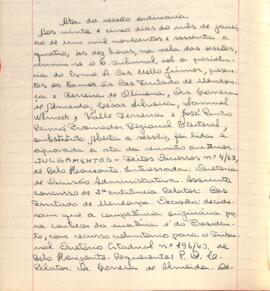 Ata da sessão ordinária
Aos vinte e cinco dias do mês de janei-
ro de um mil novecentos e sessenta e
quatro, às dez horas, na sala das sessões,
reuniu-se o E. Tribunal, sob a presidên-
cia do Exmo. Sr. Des. Mello Júnior, presen-
tes os Exmos. Srs. Des. Furtado de Mendon-
ça e Ferreira de Oliveira, Drs. Correia
de Almeida, Cesar Silveira, Samuel
e Valle Ferreira e José Paulo
Procurador Regional Eleitoral,
substituto. Aberta a sessão, foi lida e
aprovada a ata da reunião anterior.
JULGAMENTOS - Feitos Diversos nº 4/63,
de Belo Horizonte. Interessada: Diretoria
de Divisão Administrativa. Assunto:
concurso de 2ª entrância. Relator: Des.
Furtado de Mendonça. Decisão: decidi-
ram que a competência originária pa-
ra conhecer da matéria é do Presiden-
te, com recurso voluntário para o Tribu-
nal. Diretório Estadual nº 196/63, de
Belo Horizonte. Requerente: P. D. C.
Relator: Dr. Correia de Almeida. De-